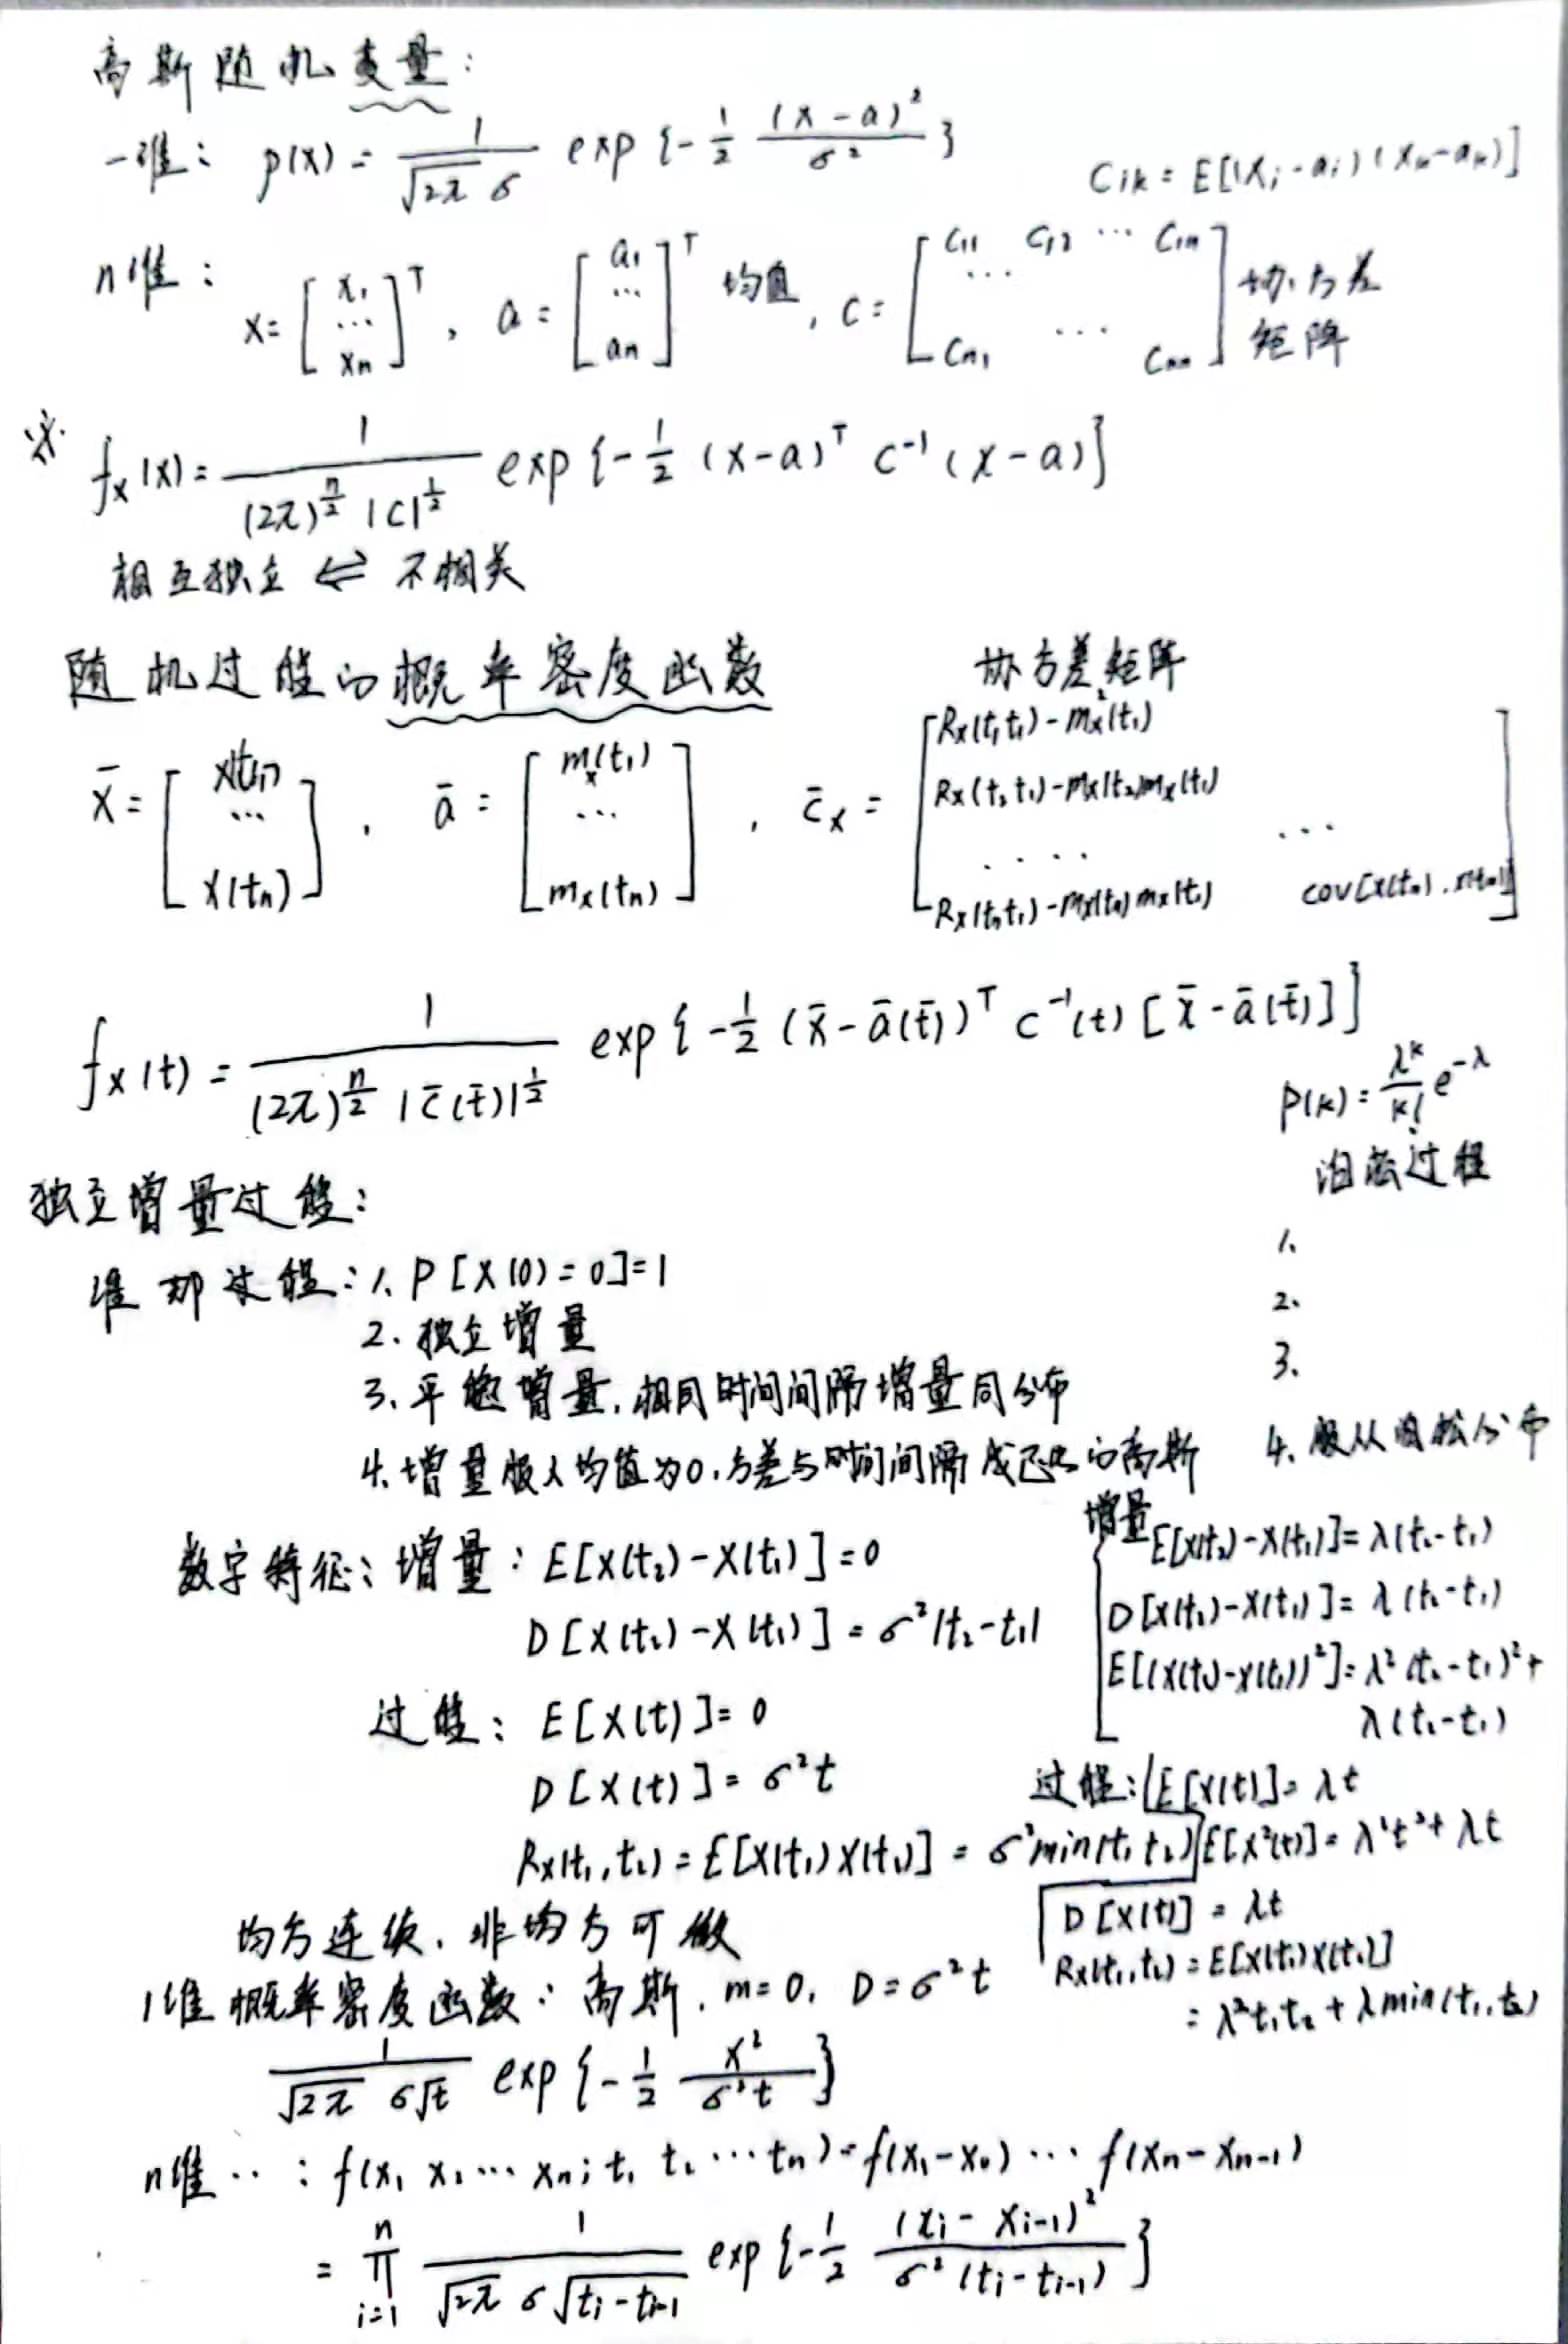 高斯随机变量:
一维: p(x) = \frac{1}{\sqrt{2π} σ} exp{-\frac{1}{2} \frac{(x-a)^2}{σ^2}}
C_{ik} = E[(X_i-a_i)(X_k-a_k)]
n维: X = [x_1 ... x_n]^T, a = [a_1 ... a_n]^T 均值, C = [C_{11} C_{12} ... C_{1n} ... C_{n1} ... C_{nn}] 协方差矩阵
※ f_X(x) = \frac{1}{(2π)^{\frac{n}{2}} |C|^{\frac{1}{2}}} exp{-\frac{1}{2} (x-a)^T C^{-1} (x-a)}
相互独立 ⇔ 不相关
随机过程的概率密度函数
协方差矩阵
\bar{X} = [X(t_1) ... X(t_n)], \bar{a} = [m_x(t_1) ... m_x(t_n)], \bar{C}_X = [R_X(t_1 t_1) - m_X^2(t_1)
R_X(t_2 t_1) - m_X(t_2) m_X(t_1) ...
....
R_X(t_n t_1) - m_X(t_n) m_X(t_1) cov[X(t_n), X(t_n)]]
f_X(t) = \frac{1}{(2π)^{\frac{n}{2}} |\bar{C}(\bar{t})|^{\frac{1}{2}}} exp{-\frac{1}{2} (\bar{x} - \bar{a}(\bar{t}))^T C^{-1}(t) [\bar{x} - \bar{a}(\bar{t})]}
独立增量过程:
维那过程: 1. P[X(0)=0]=1
2. 独立增量
3. 平稳增量,相同时间间隔增量同分布
4. 增量服从均值为0,方差与时间间隔成正比的高斯
数字特征: 增量: E[X(t_2)-X(t_1)]=0
D[X(t_2)-X(t_1)] = σ^2|t_2-t_1|
过程: E[X(t)] = 0
D[X(t)] = σ^2 t
R_X(t_1,t_2) = E[X(t_1)X(t_2)] = σ^2 min(t_1 t_2)
均方连续,非均方可微
1维概率密度函数: 高斯, m=0, D=σ^2 t
\frac{1}{\sqrt{2π} σ\sqrt{t}} exp{-\frac{1}{2} \frac{x^2}{σ^2 t}}
n维..: f(x_1 x_2 ... x_n; t_1 t_2 ... t_n) = f(x_1-x_0) ... f(x_n-x_{n-1})
= \prod_{i=1}^{n} \frac{1}{\sqrt{2π} σ\sqrt{t_i-t_{i-1}}} exp{-\frac{1}{2} \frac{(x_i-x_{i-1})^2}{σ^2(t_i-t_{i-1})}}
P(k) = \frac{λ^k}{k!} e^{-λ}
泊松过程
1.
2.
3.
4. 服从泊松分布
增量 E[X(t_2)-X(t_1)] = λ(t_2-t_1)
D[X(t_2)-X(t_1)] = λ(t_2-t_1)
E[(X(t_2)-X(t_1))^2] = λ^2(t_2-t_1)^2 +
λ(t_2-t_1)
过程: E[X(t)] = λt
E[X^2(t)] = λ^2 t^2 + λt
D[X(t)] = λt
R_X(t_1,t_2) = E[X(t_1)X(t_2)]
= λ^2 t_1 t_2 + λ min(t_1,t_2)